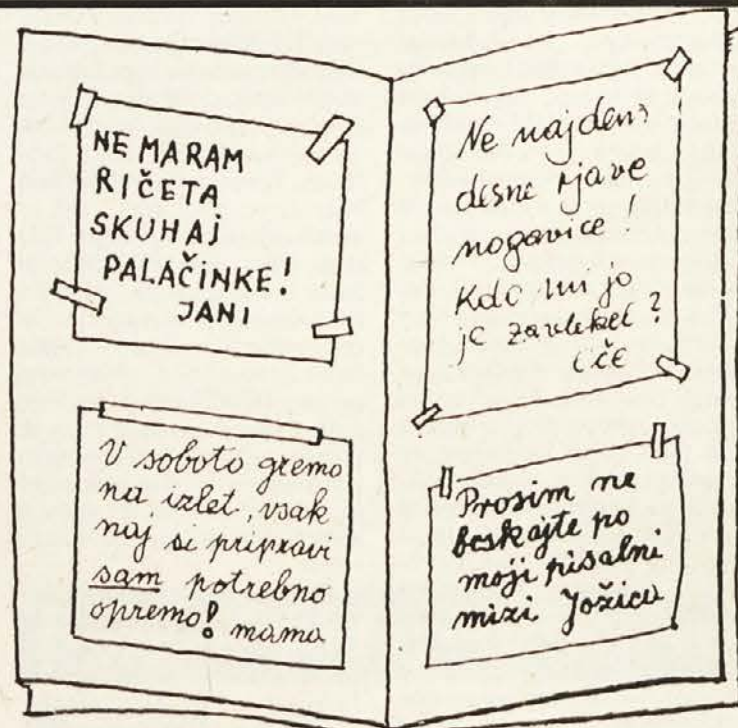 NE MARAM
RIČETA
SKUHAJ
PALAČINKE!
JANI
V soboto gremo
na izlet, vsak
naj si pripravi
sam potrebno
opremo! mama
Ne najdem
desne rjave
nogavice!
Kdo mi jo
je zavlekel?
oče
Prosim ne
brskajte po
moji pisalni
mizi Jožica